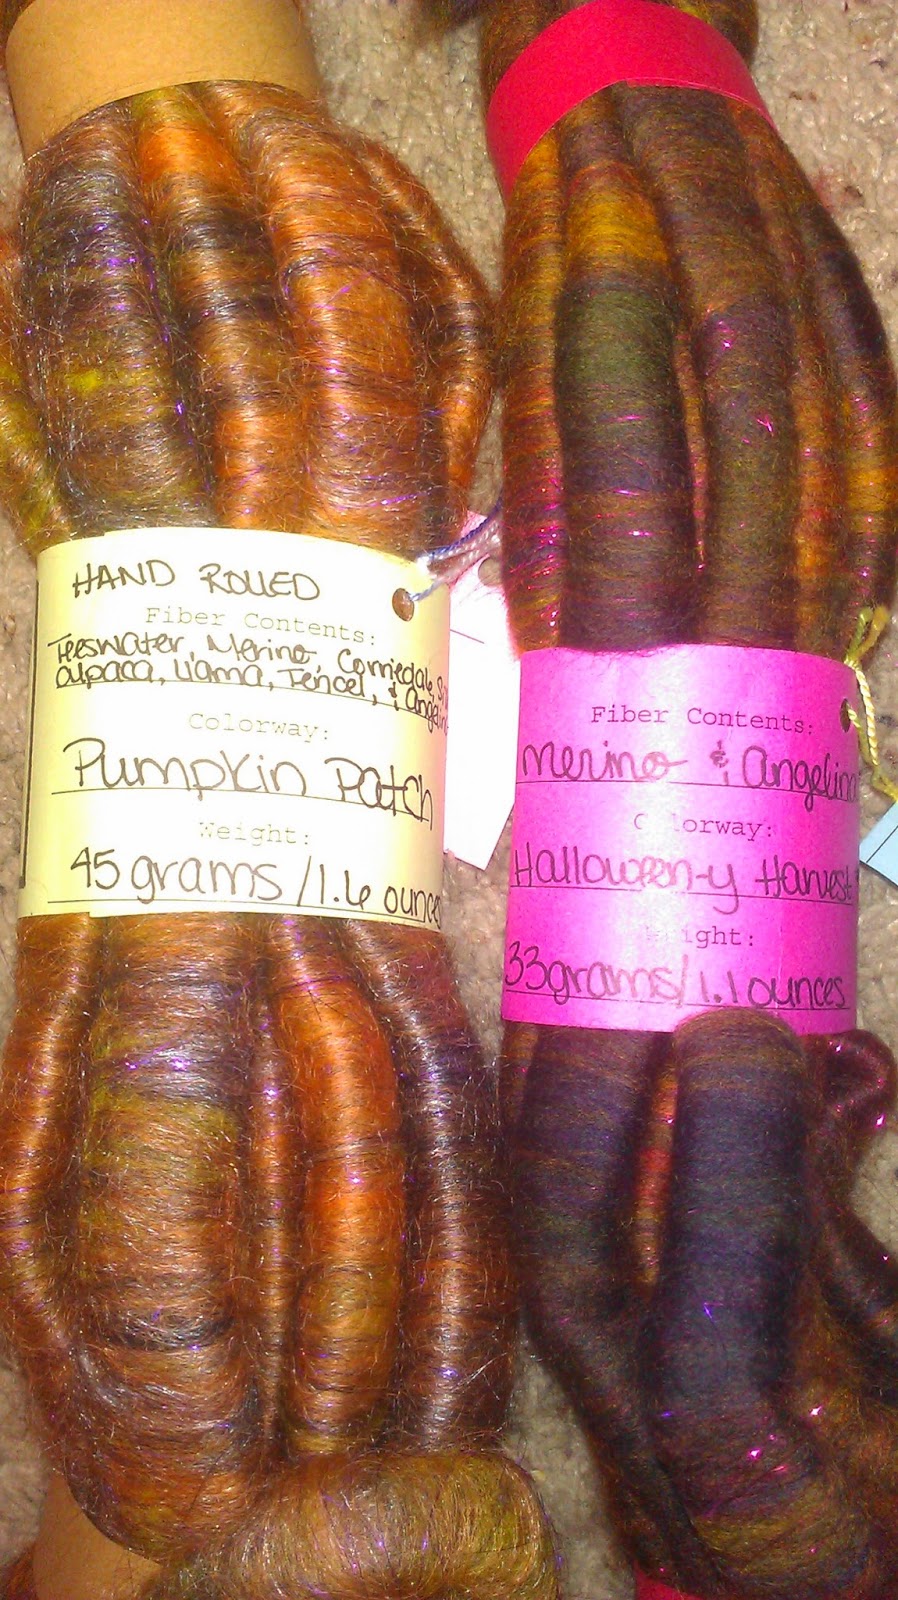 HAND ROLLED
Fiber Contents:
Teeswater, Merino, Corriedale,
alpaca, Llama, Tencel, &
Colorway:
Pumpkin Patch
Weight:
45 grams / 1.6 ounces
Fiber Contents:
Merino & Angelina
Colorway:
Halloween-y Harvest
Weight:
33 grams/1.1 ounces